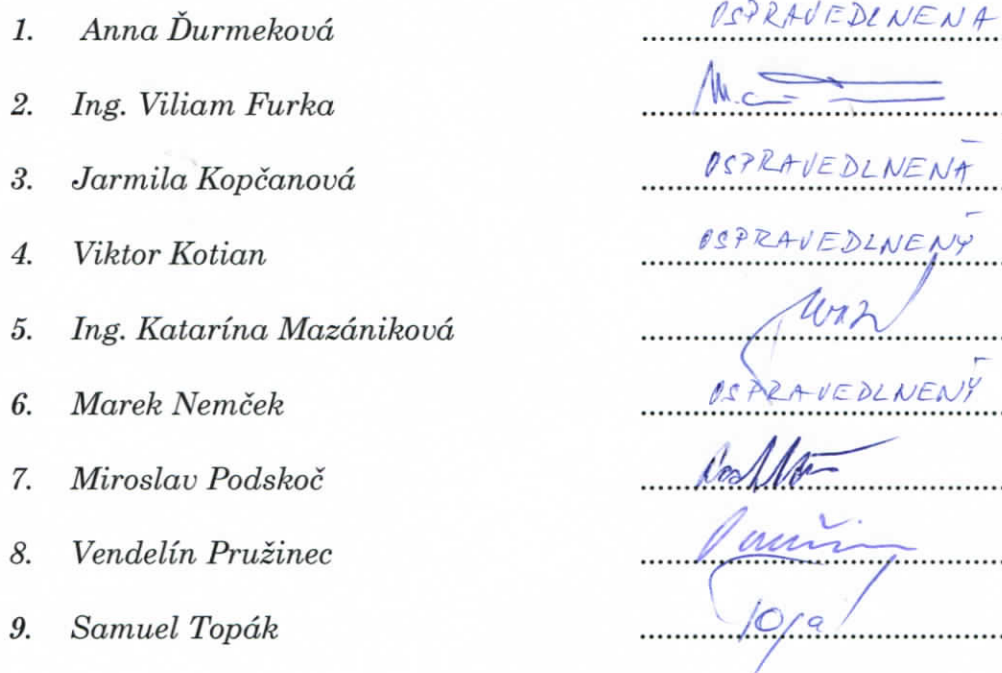 1. Anna Ďurmeková OSPRAVEDLNENA
2. Ing. Viliam Furka
3. Jarmila Kopčanová OSPRAVEDLNENÁ
4. Viktor Kotian OSPRAVEDLNENÝ
5. Ing. Katarína Mazániková
6. Marek Nemček OSPRAVEDLNENÝ
7. Miroslav Podskoč
8. Vendelín Pružinec
9. Samuel Topák